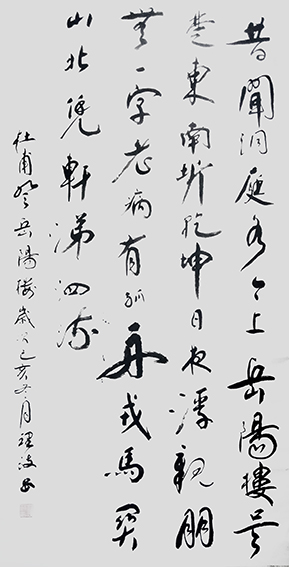 昔聞洞庭水今上岳陽樓吳
楚東南坼乾坤日夜浮親朋
無一字老病有孤舟戎馬關
山北憑軒涕泗流
杜甫登岳陽樓歲次己亥冬月理波書